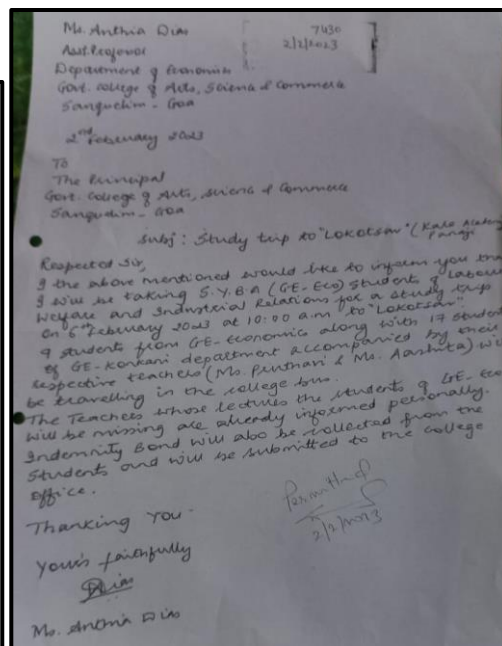 Ms. Anthia Dias
7430
2/2/2023
Asst. Professor
Department of Economics
Govt. College of Arts, Science & Commerce
Sanquelim - Goa
2nd February 2023
To
The Principal
Govt. College of Arts, Science & Commerce
Sanquelim - Goa
Subj: Study trip to "LOKOTSAV" (Kala Academy
Panaji
Respected Sir,
I the above mentioned would like to inform you that
I will be taking S.Y.B.A (GE-Eco) Students of Labour
Welfare and Industrial Relations for a study trip
on 6th February 2023 at 10:00 a.m to "LOKOTSAV"
9 students from GE-Economic along with 17 students
of GE-Konkani department accompanied by their
respective teachers (Ms. & Ms. Aashita) will
be travelling in the college bus.
The Teachers whose lectures the students of GE-Eco
will be missing are already informed personally.
Indemnity Bond will also be collected from the
Students and will be submitted to the college
office.
Thanking You
Permitted
2/2/2023
Yours faithfully
Dias
Ms. Anthia Dias